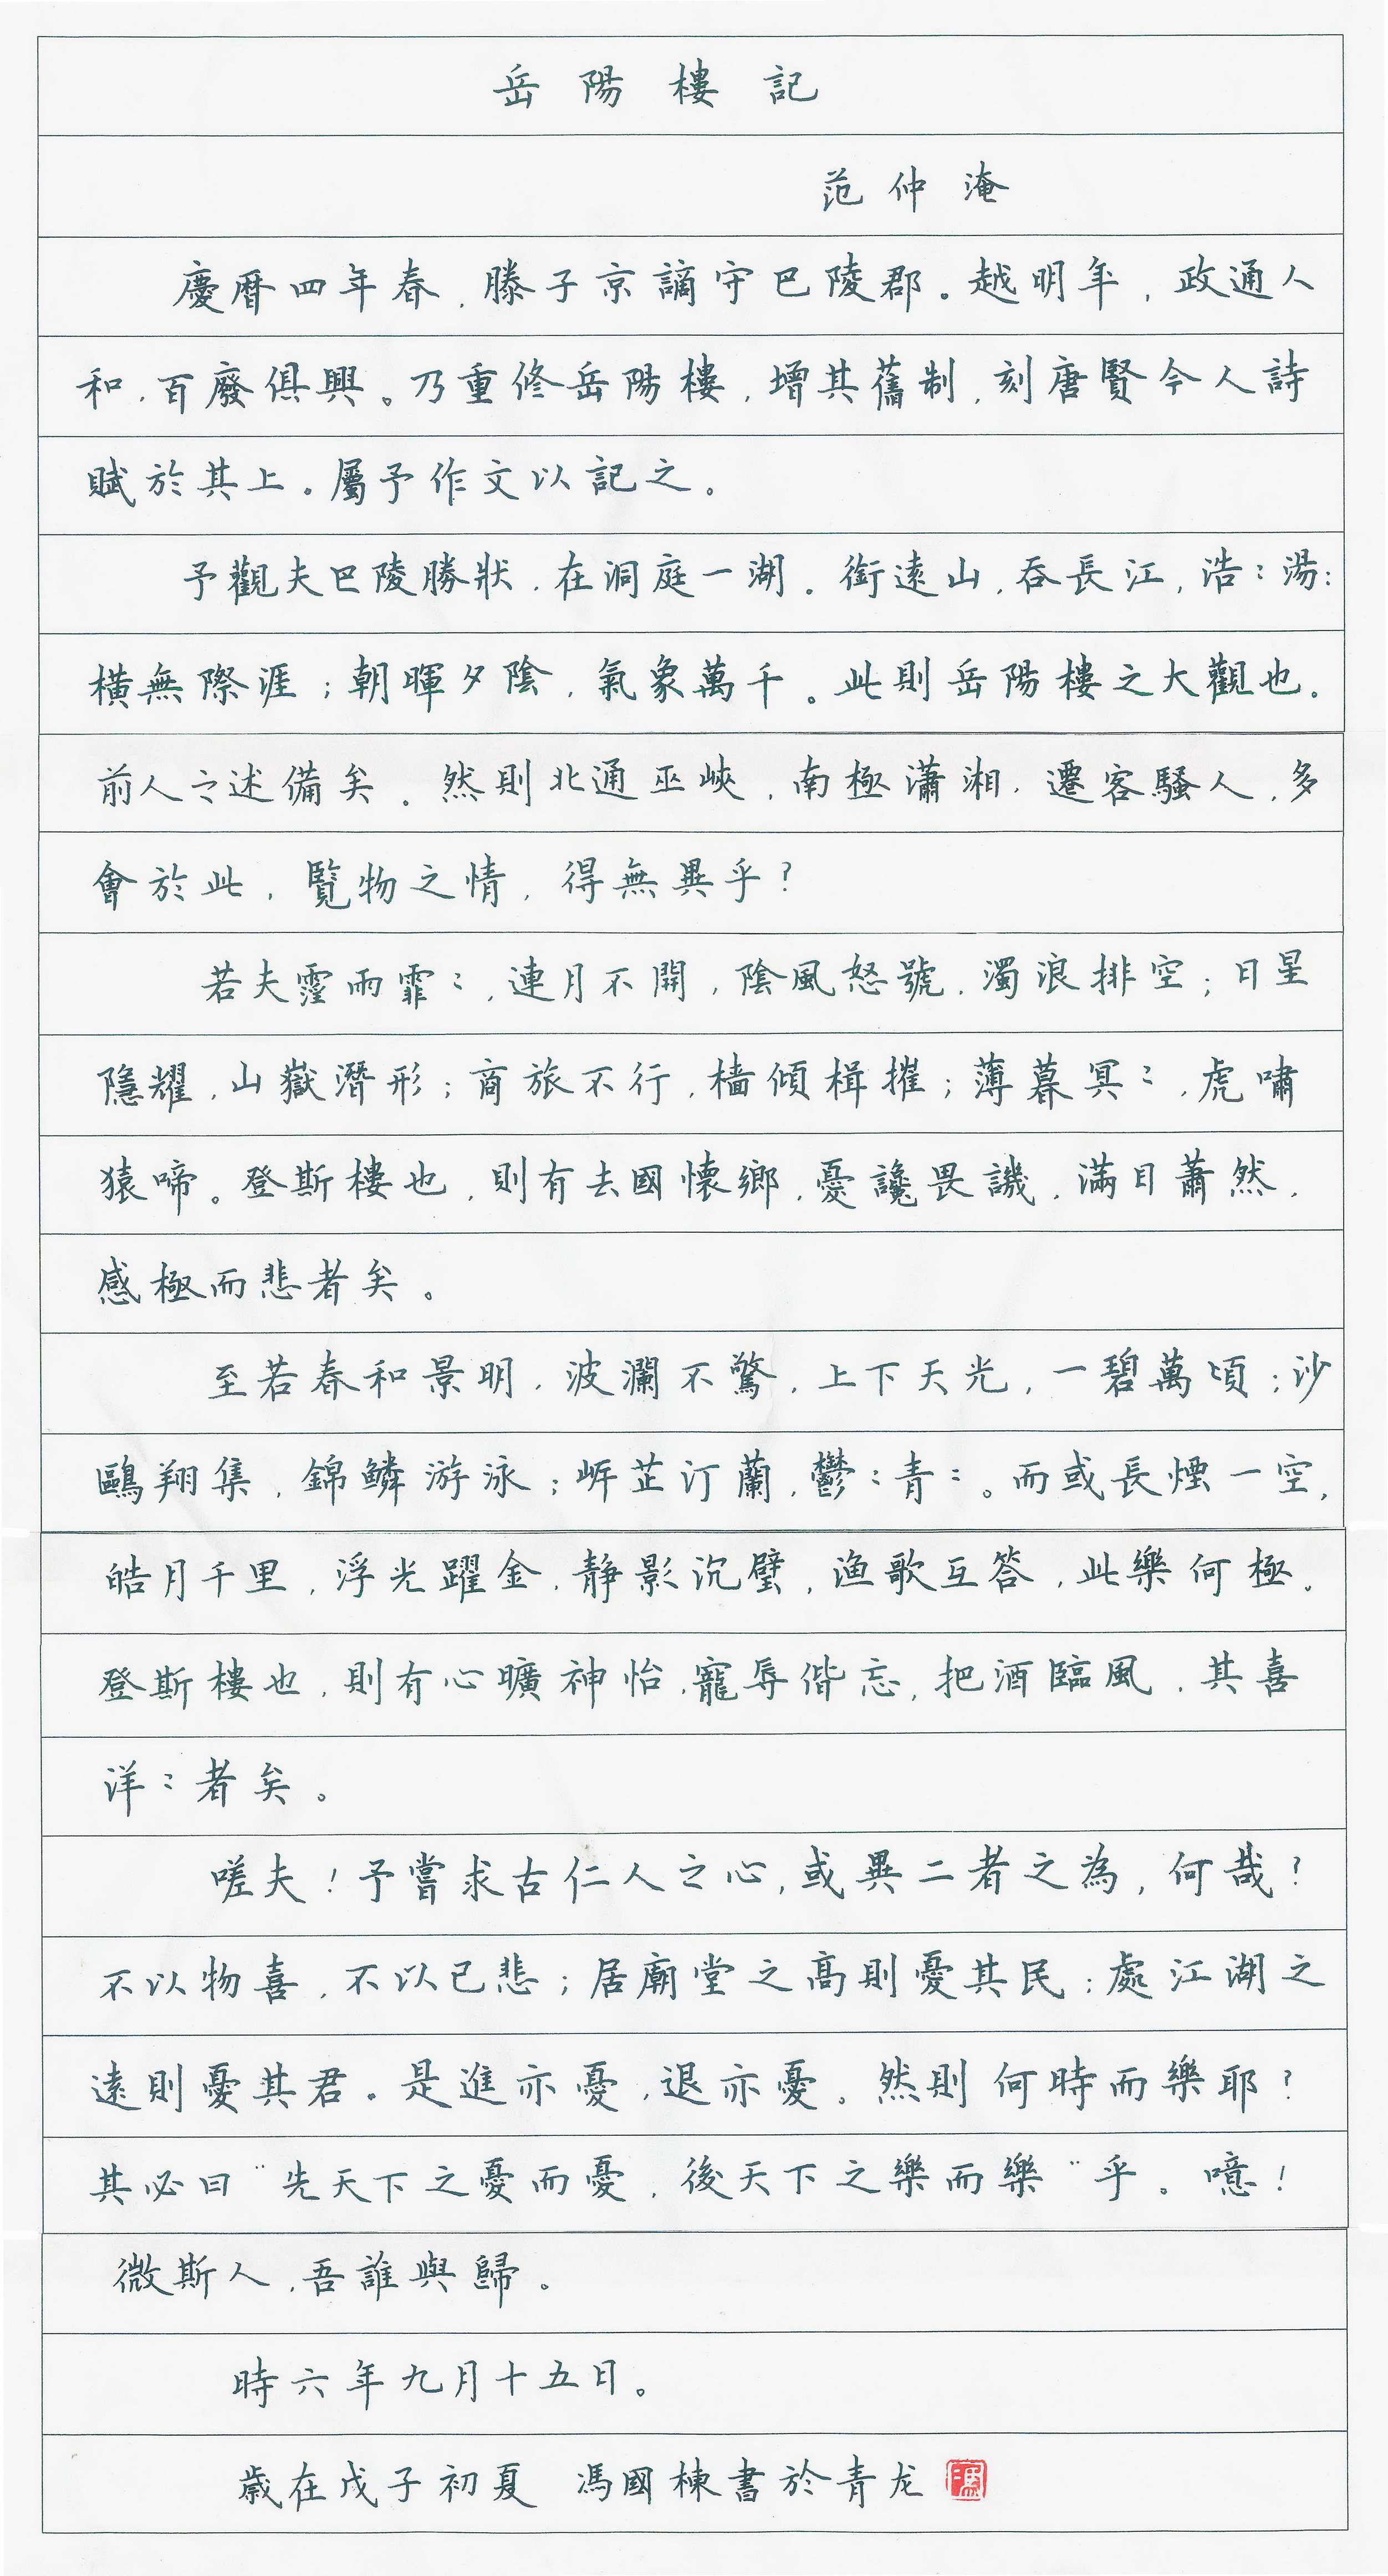 岳陽樓記
范仲淹
慶曆四年春，滕子京謫守巴陵郡。越明年，政通人
和，百廢俱興。乃重修岳陽樓，增其舊制，刻唐賢今人詩
賦於其上。屬予作文以記之。
予觀夫巴陵勝狀，在洞庭一湖。銜遠山，吞長江，浩〻湯〻
橫無際涯；朝暉夕陰，氣象萬千。此則岳陽樓之大觀也。
前人之述備矣。然則北通巫峽，南極瀟湘，遷客騷人，多
會於此，覽物之情，得無異乎？
若夫霪雨霏〻，連月不開，陰風怒號，濁浪排空；日星
隱耀，山嶽潛形；商旅不行，檣傾楫摧；薄暮冥〻，虎嘯
猿啼。登斯樓也，則有去國懷鄉，憂讒畏譏，滿目蕭然，
感極而悲者矣。
至若春和景明，波瀾不驚，上下天光，一碧萬頃；沙
鷗翔集，錦鱗游泳；岸芷汀蘭，鬱〻青〻。而或長煙一空，
皓月千里，浮光躍金，靜影沉璧，漁歌互答，此樂何極。
登斯樓也，則有心曠神怡，寵辱偕忘，把酒臨風，其喜
洋〻者矣。
嗟夫！予嘗求古仁人之心，或異二者之為，何哉？
不以物喜，不以己悲；居廟堂之高則憂其民；處江湖之
遠則憂其君。是進亦憂，退亦憂。然則何時而樂耶？
其必曰“先天下之憂而憂，後天下之樂而樂”乎。噫！
微斯人，吾誰與歸。
時六年九月十五日。
歲在戊子初夏 馮國棟書於青龙
馮